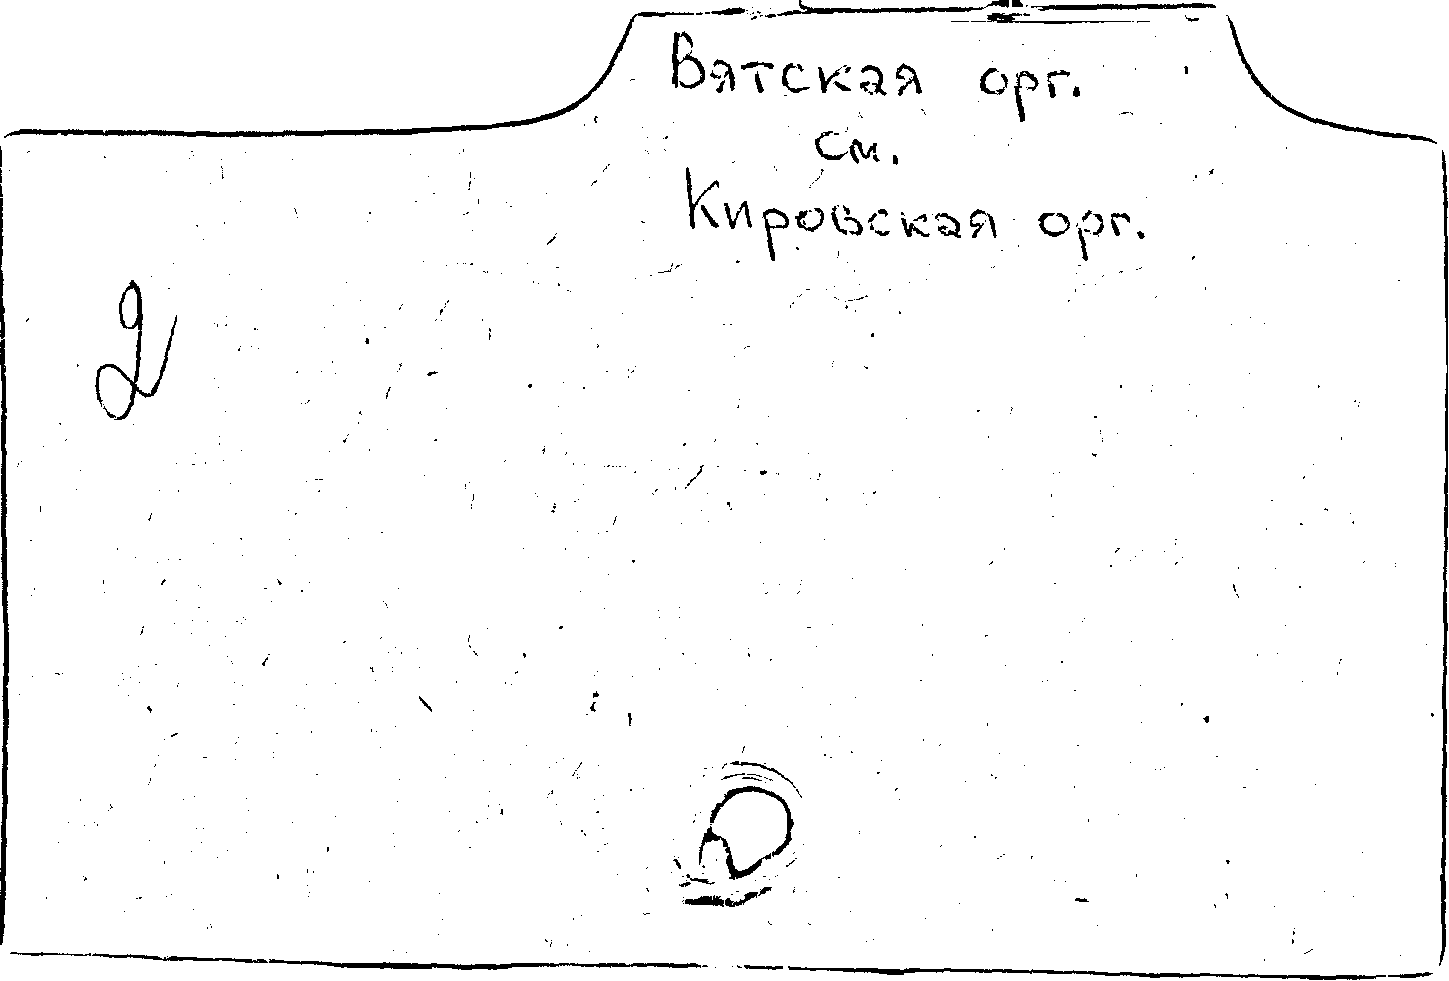 Вятская орг.
см.
Кировская орг.
2